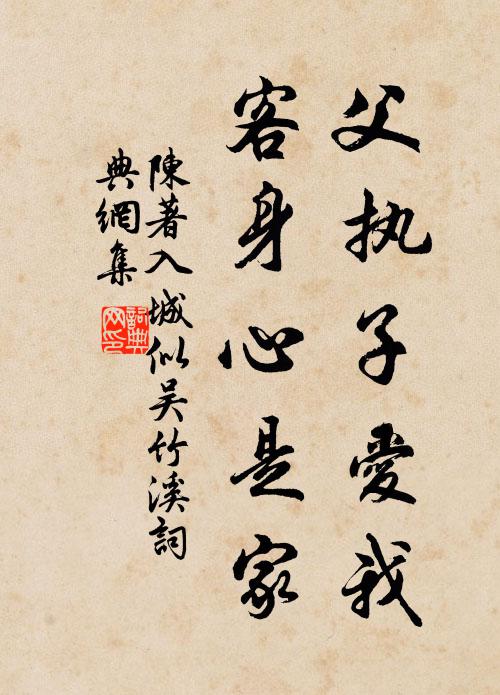 父执子愛我
客身心是家
陳著入城似吴竹溪詞
典網集
詞典网印